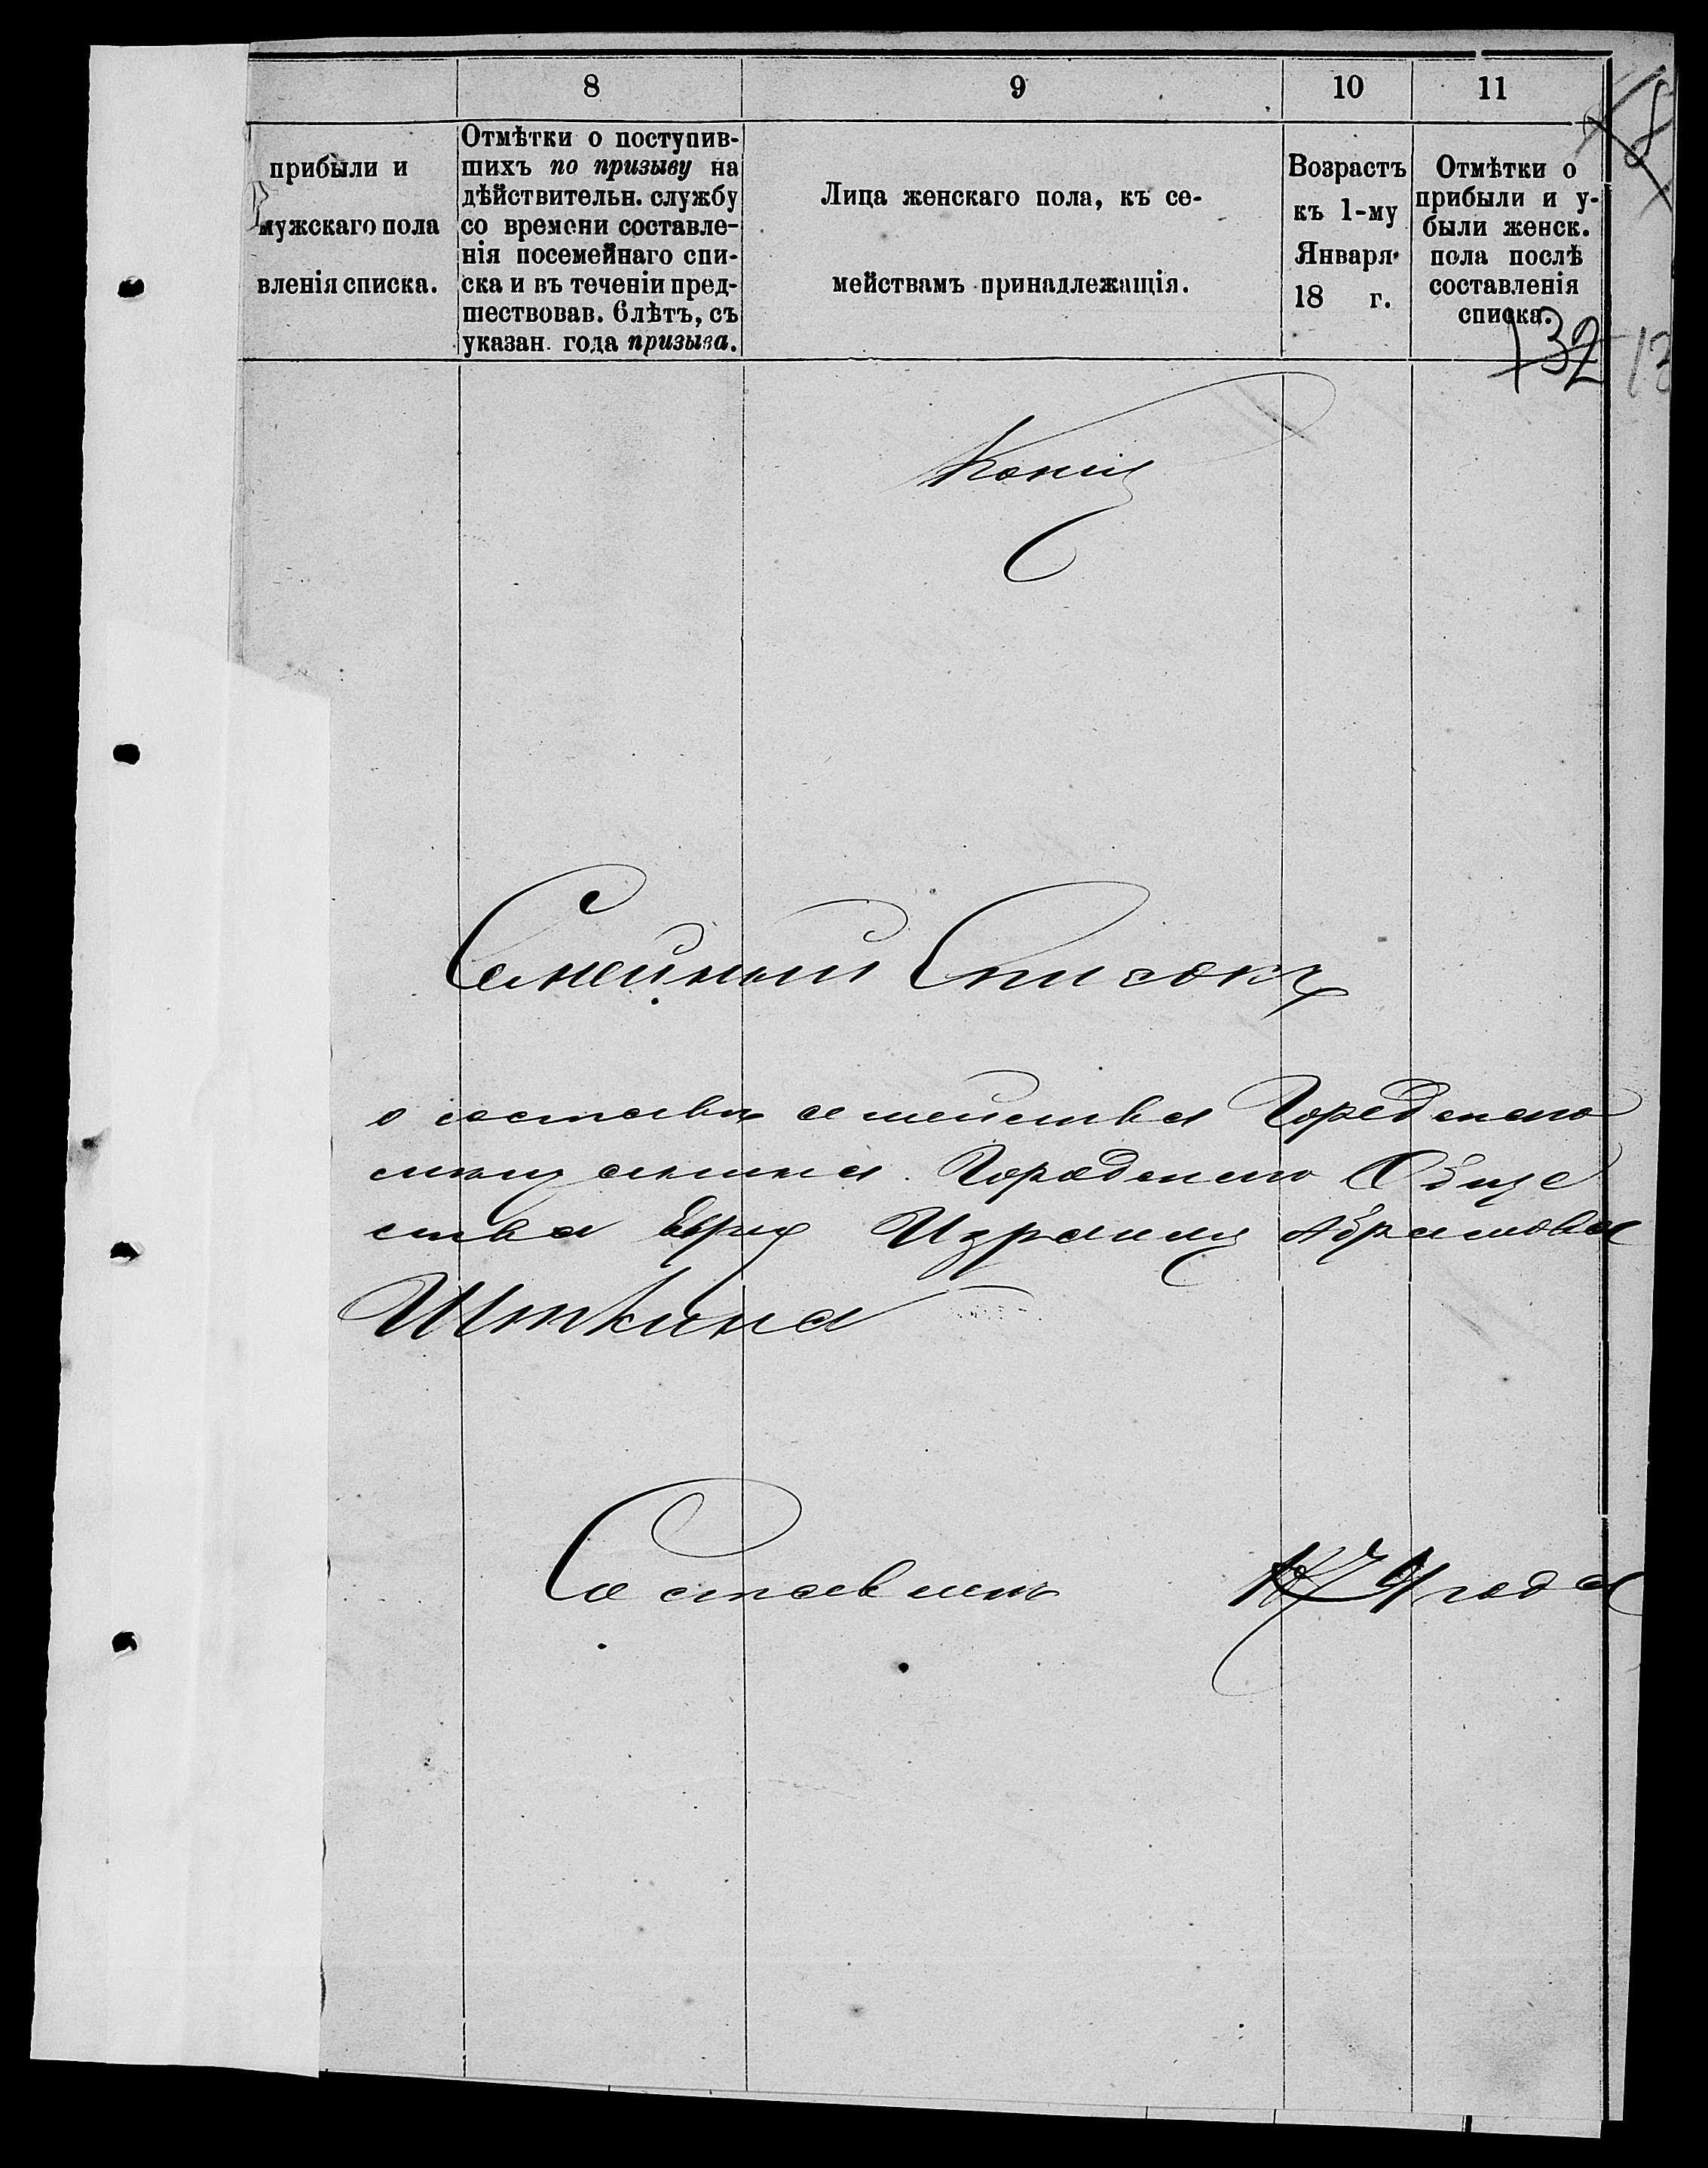 8 9 10 11
прибыли и
мужскаго пола
вленія списка.
Отмѣтки о поступив-
шихъ по призыву на
дѣйствительн. службу
со времени составле-
нія посемейнаго спи-
ска и въ теченіи пред-
шествовав. 6 лѣтъ, съ
указан. года призыва.
Лица женскаго пола, къ се-
мействамъ принадлежащія.
Возрастъ
къ 1-му
Января
18 г.
Отмѣтки о
прибыли и у-
были женск.
пола послѣ
составленія
списка.
8
132 13
Семейный Списокъ
о составѣ семейства
мѣщанина Обще
ства Израиля Абрамова
Иткина
Составленъ 1874 года